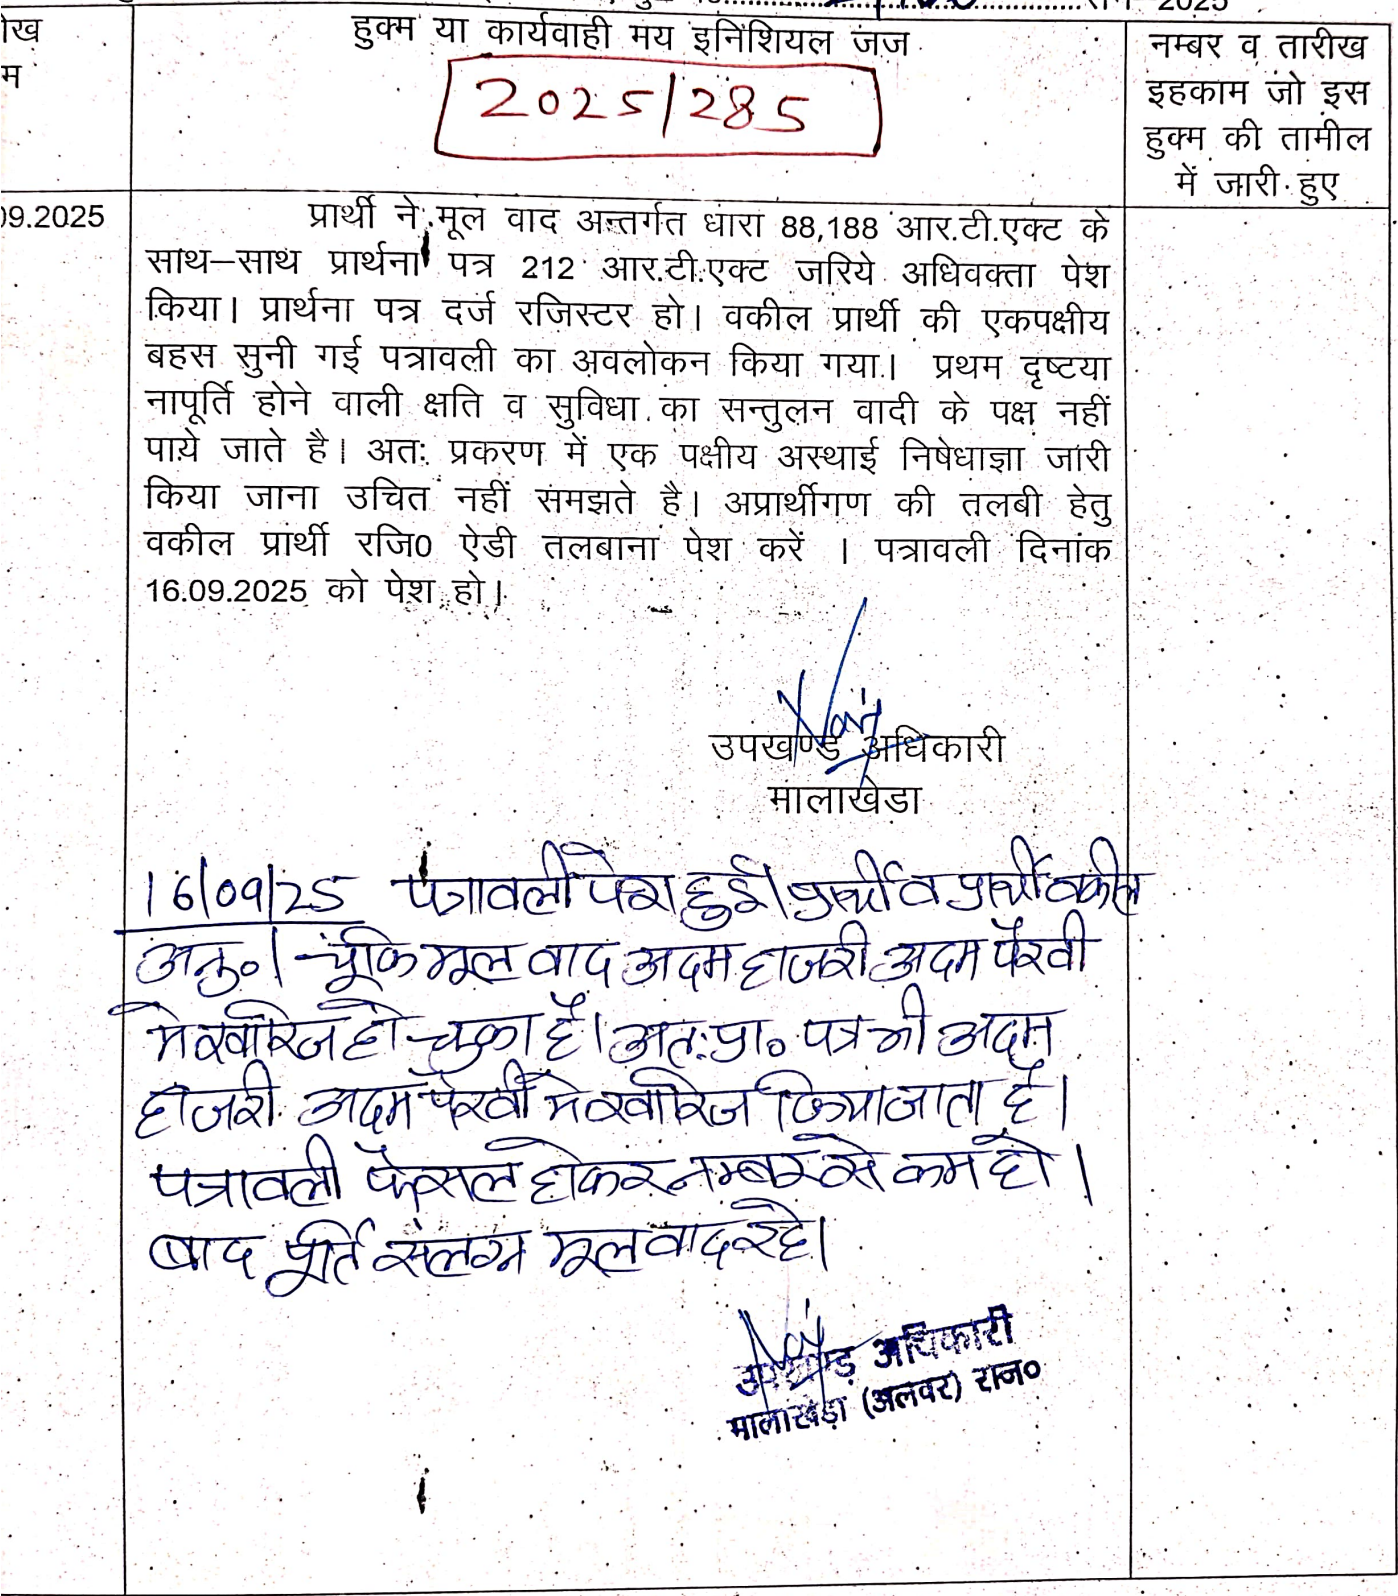 2025
ेख
म
हुक्म या कार्यवाही मय इनिशियल जज
2025/285
नम्बर व तारीख
इहकाम जो इस
हुक्म की तामील
में जारी हुए
09.2025
प्रार्थी ने मूल वाद अन्तर्गत धारा 88,188 आर.टी.एक्ट के
साथ–साथ प्रार्थना पत्र 212 आर.टी.एक्ट जरिये अधिवक्ता पेश
किया। प्रार्थना पत्र दर्ज रजिस्टर हो। वकील प्रार्थी की एकपक्षीय
बहस सुनी गई पत्रावली का अवलोकन किया गया। प्रथम दृष्टया
नापूर्ति होने वाली क्षति व सुविधा का सन्तुलन वादी के पक्ष नहीं
पाये जाते है। अतः प्रकरण में एक पक्षीय अस्थाई निषेधाज्ञा जारी
किया जाना उचित नहीं समझते है। अप्रार्थीगण की तलबी हेतु
वकील प्रार्थी रजि0 ऐडी तलबाना पेश करें । पत्रावली दिनांक
16.09.2025 को पेश हो।
उपखण्ड अधिकारी
मालाखेडा
16/09/25 पत्रावली पेश हुई। प्रार्थी व प्रार्थी वकील
अनु०। चूंकि मूल वाद अदम हाजरी अदम पैरवी
मे खारिज हो चुका है। अतः प्रा० पत्र भी अदम
हाजरी अदम पैरवी मे खारिज किया जाता है।
पत्रावली फैसल होकर नम्बर से कम हो।
बाद पूर्ति संलग्न मूल वाद रहे।
उपखण्ड अधिकारी
मालाखेड़ा (अलवर) राज०